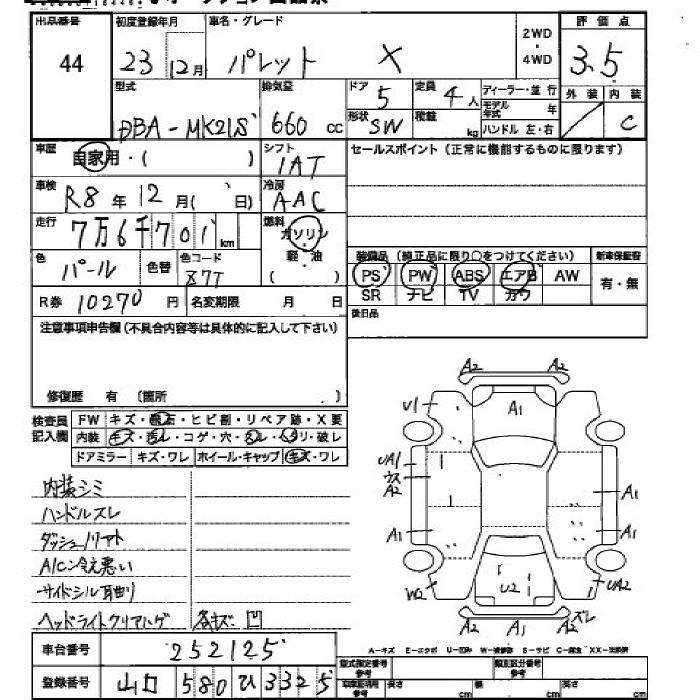 出品番号 初度登録年月 車名・グレード 2WD・4WD 評価点
44 23年12月 パレット X 3.5
型式 排気量 ドア 5 定員 4人 ディーラー・並行 外装 内装
DBA-MK21S 660cc 形状 SW 積載 kg モデル年式 年 ハンドル 左・右 / C
車歴 自家用・( ) シフト IAT セールスポイント(正常に機能するものに限ります)
車検 R8年12月( 日) 冷房 AAC
走行 7万6千701km 燃料 ガソリン
軽・油
( )
色 パール 色替 色コード Z7T 装備品(純正品に限り○をつけてください) 新車保証書
PS PW ABS エアB AW 有・無
R券 10270円 名変期限 月 日 SR ナビ TV カワ
注意事項申告欄(不具合内容等は具体的に記入して下さい) 後日品
修復歴 有 〔箇所 〕
検査員記入欄 FW キズ・飛石・ヒビ割・リペア跡・X要
内装 キズ・汚レ・コゲ・穴・スレ・ハリ・破レ
ドアミラー キズ・ワレ ホイール・キャップ キズ・ワレ
A2 A2
U1 A1
UA1
ウス
A2 A1
A1 A1
W2 U2 UA2
A2 A1 A2 ズレ
内装シミ
ハンドルスレ
ダッシュノリマット
A/Cン冷え悪い
サイドシル耳曲り
ヘッドライトクリアハゲ 各キズ凹
A-キズ E-エクボ U-凹み W-補修跡 S-サビ C-腐食 XX-交換済
車台番号 252125
登録番号 山口 580 ひ 3325
型式指定番号 類別区分番号
車庫証明用参考 長さ cm 幅 cm 高さ 参考 cm